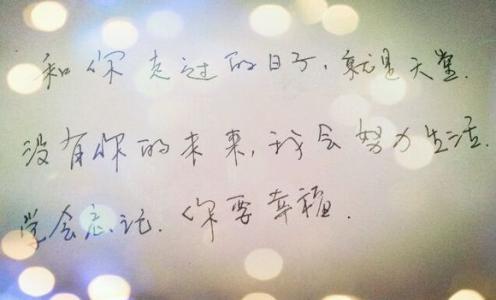 和你走过的日子，就是天堂.
没有你的未来，我会努力生活.
学会忘记.你要幸福.